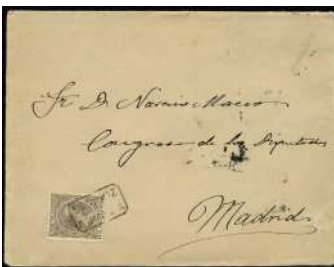 Sr. D. Narciso Maeso
Congreso de los Diputados
Madrid